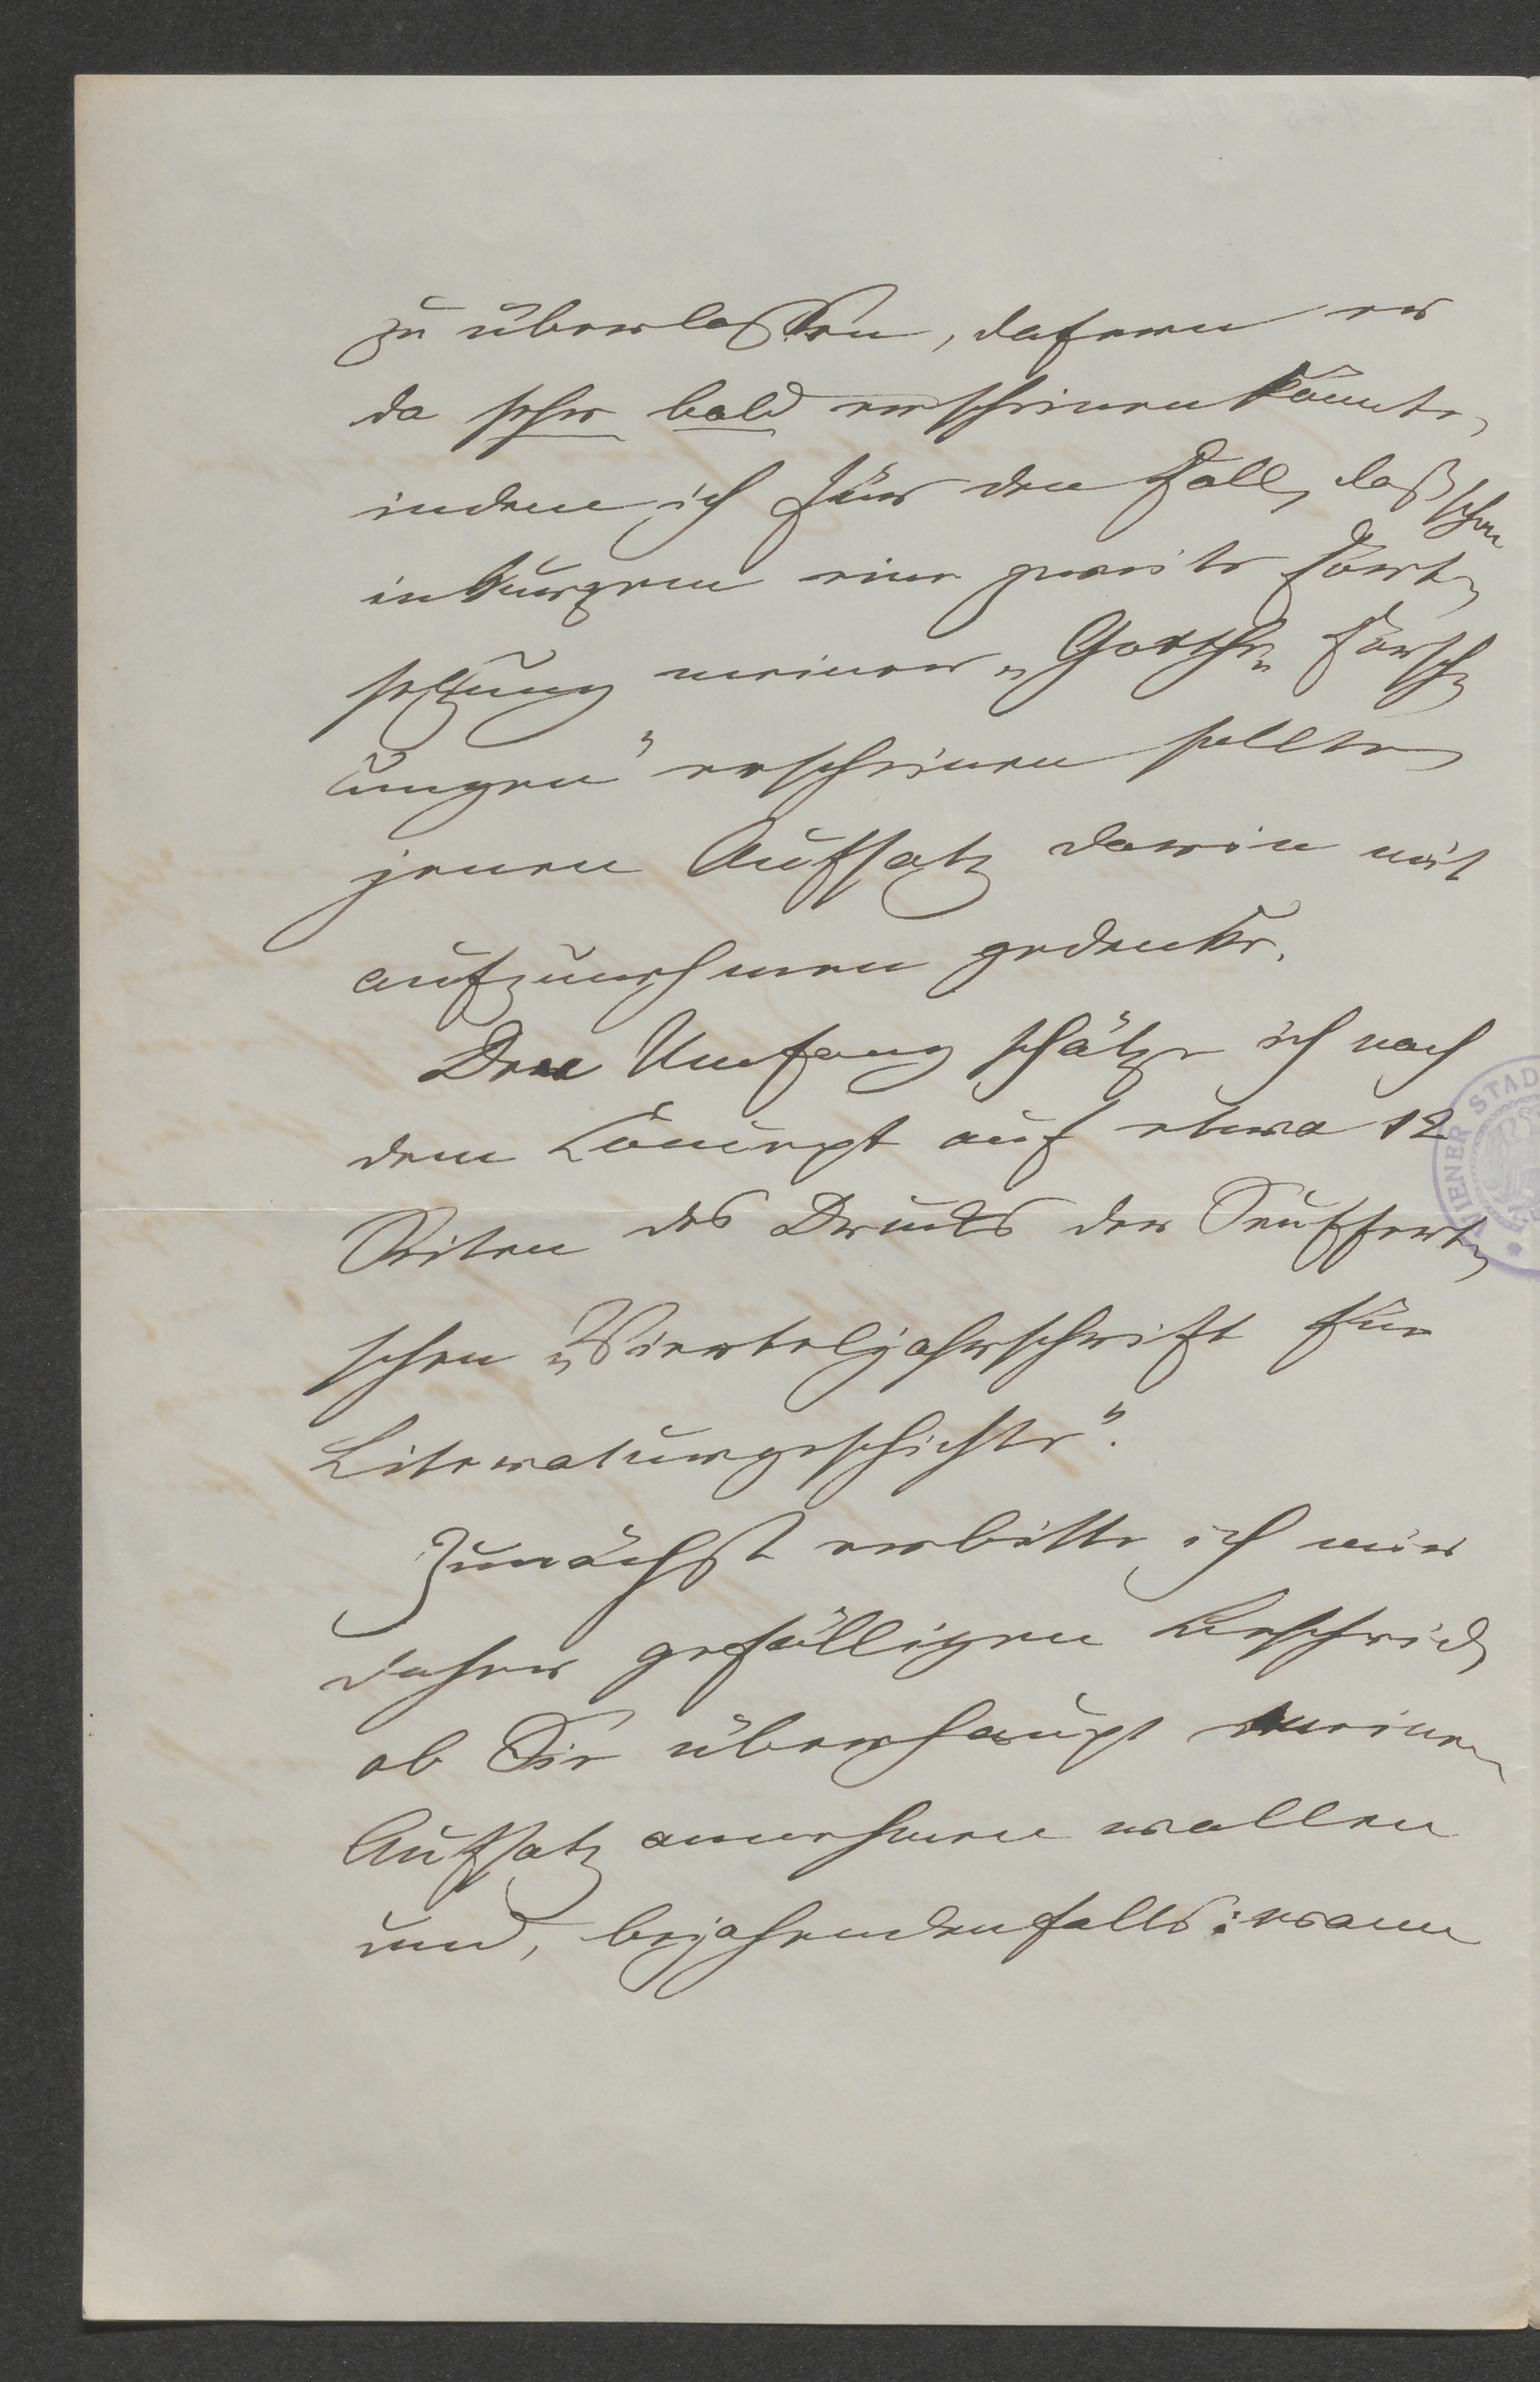 zu überlassen, dafern er
da sehr bald erscheinen könnte,
indem ich für den Fall, daß schon
in Kurzem eine zweite Fort-
setzung meiner „Goethe-Forsch-
ungen“ erscheinen sollte,
jenen Aufsatz darin mit
aufzunehmen gedenke.
Den Umfang schätze ich nach
dem Concept auf etwa 12
Seiten des Drucks der Seuffert-
schen „Vierteljahrschrift für
Literaturgeschichte“.
Zunächst erbitte ich mir
daher gefälligen Bescheid,
ob Sie überhaupt meinen
Aufsatz annehmen wollen
und, bejahendenfalls: wann
WIENER STAD